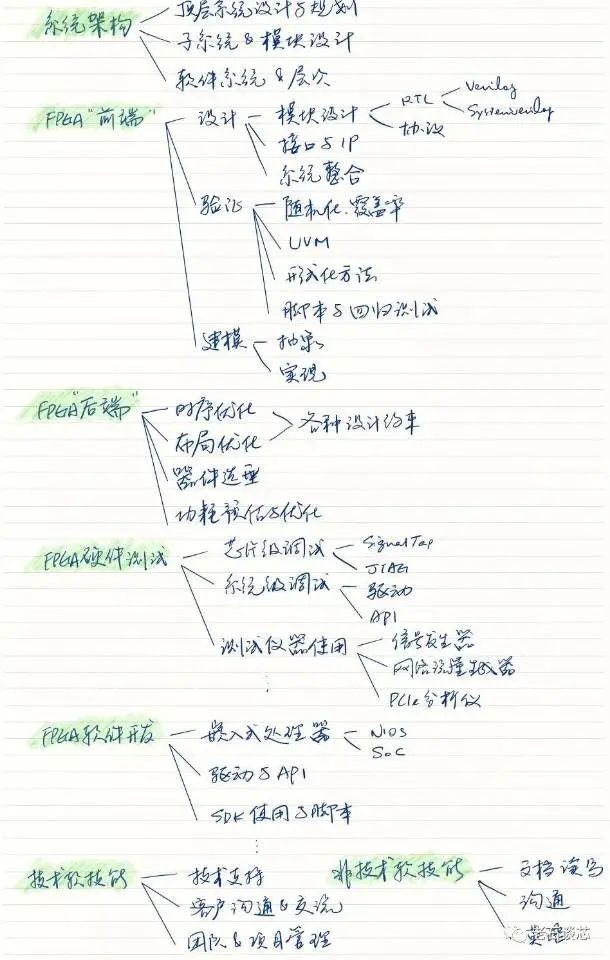 顶层系统设计与规划
系统架构
子系统 & 模块设计
软件系统 & 层次
FPGA"前端"
设计
模块设计
RTL
Verilog
SystemVerilog
协议
接口与IP
系统整合
验证
随机化、覆盖率
UVM
形式化方法
脚本与回归测试
建模
抽象
实现
FPGA"后端"
时序优化
各种设计约束
布局优化
器件选型
功耗预估与优化
FPGA硬件测试
芯片级调试
SignalTap
JTAG
系统级调试
驱动
API
测试仪器使用
信号发生器
网络流量生成器
PCIe分析仪
⋮
FPGA软件开发
嵌入式处理器
NIOS
SoC
驱动与API
SDK使用与脚本
⋮
技术软技能
技术支持
客户沟通&交流
团队&项目管理
非技术软技能
文档读写
沟通
老石谈芯